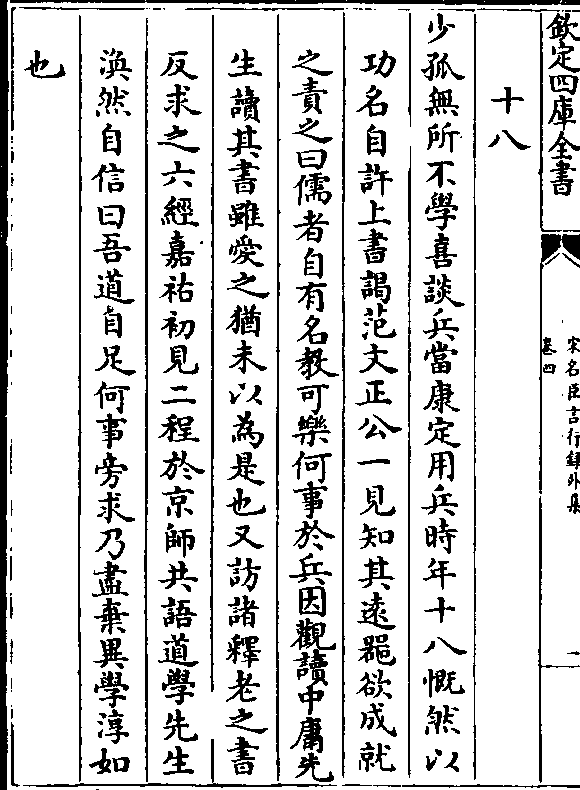 欽定四庫全書
宋名臣言行録外集
卷四
一
十八
少孤無所不學喜談兵當康定用兵時年十八慨然以
功名自許上書謁范文正公一見知其遠器欲成就
之責之曰儒者自有名教可樂何事於兵因觀讀中庸先
生讀其書雖愛之猶未以為是也又訪諸釋老之書
反求之六經嘉祐初見二程於京師共語道學先生
渙然自信曰吾道自足何事旁求乃盡棄異學淳如
也